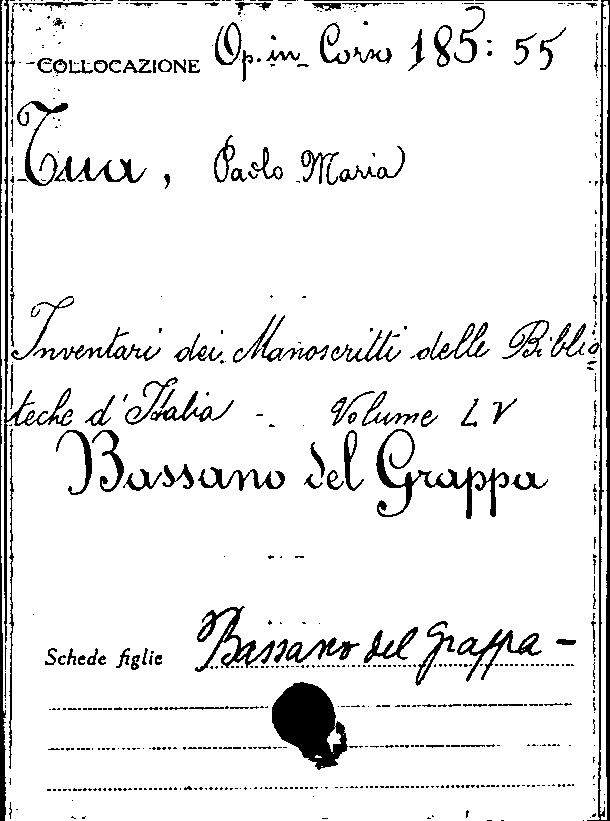 COLLOCAZIONE Op. in Corso 185: 55
Tua, Paolo Maria
Inventari dei Manoscritti delle Biblio
teche d'Italia -. Volume LV
Bassano del Grappa
Schede figlie Bassano del Grappa -